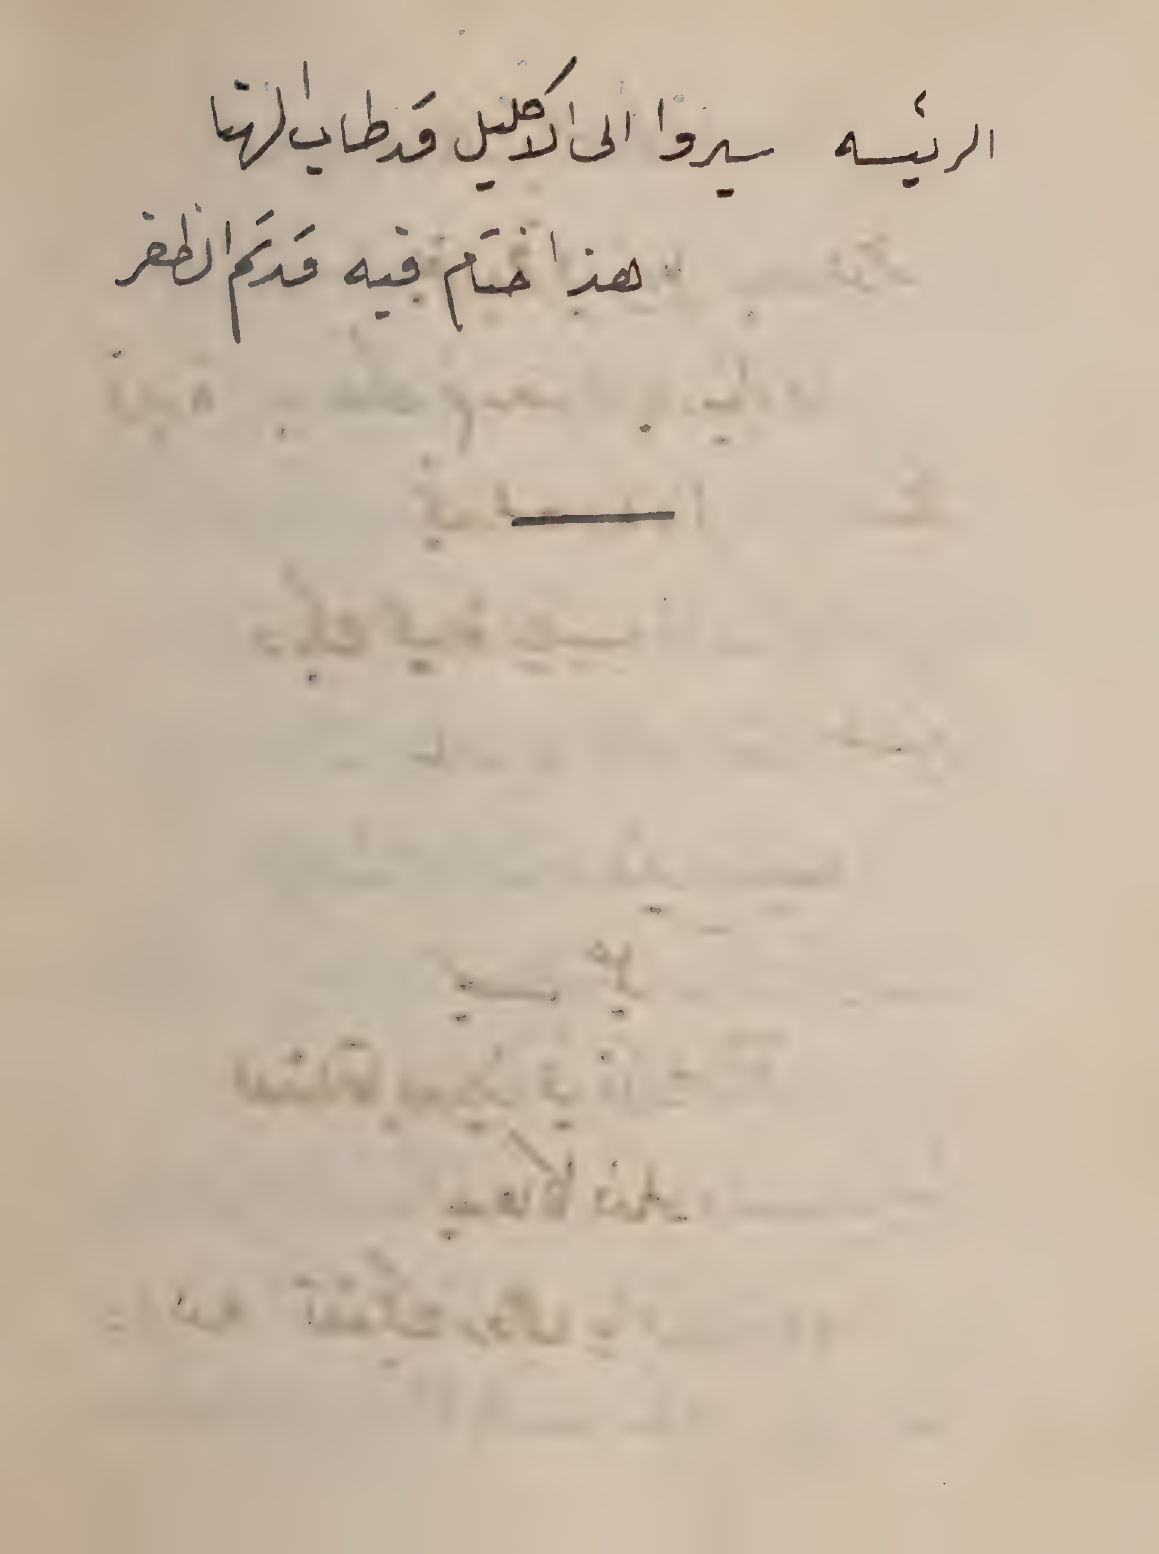 الرئيسه سيروا الى الاكليل قد طاب الهنا
هذا ختام فيه قد تم الظفر